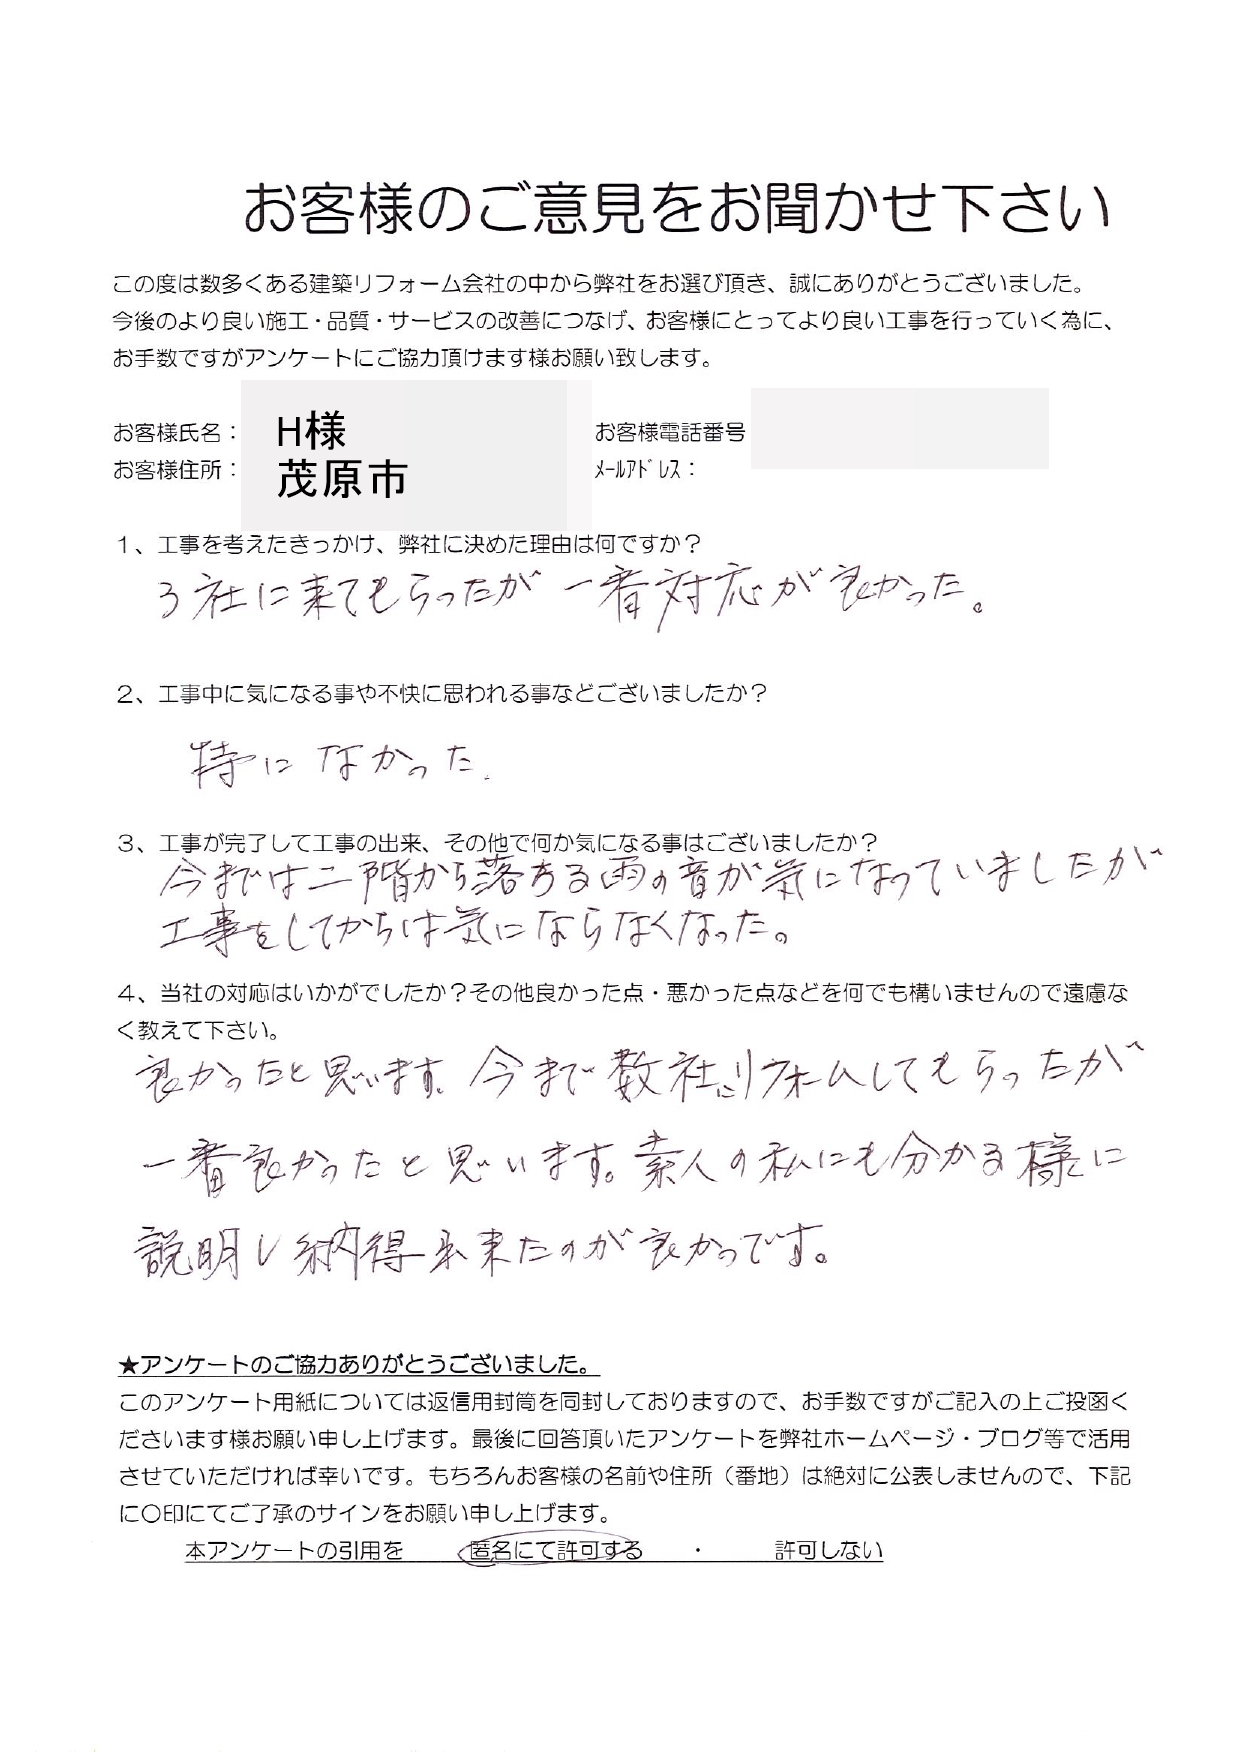 お客様のご意見をお聞かせ下さい
この度は数多くある建築リフォーム会社の中から弊社をお選び頂き、誠にありがとうございました。
今後のより良い施工・品質・サービスの改善につなげ、お客様にとってより良い工事を行っていく為に、
お手数ですがアンケートにご協力頂けます様お願い致します。
お客様氏名： H様 お客様電話番号
お客様住所： 茂原市 ﾒｰﾙｱﾄﾞﾚｽ：
1、工事を考えたきっかけ、弊社に決めた理由は何ですか？
3社に来てもらったが一番対応が良かった。
2、工事中に気になる事や不快に思われる事などございましたか？
特になかった.
3、工事が完了して工事の出来、その他で何か気になる事はございましたか？
今までは二階から落ちる雨の音が気になっていましたが
工事をしてからは気にならなくなった。
4、当社の対応はいかがでしたか？その他良かった点・悪かった点などを何でも構いませんので遠慮な
く教えて下さい。
良かったと思います。今まで数社にリフォームしてもらったが
一番良かったと思います。素人の私にも分かる様に
説明し納得出来たのが良かっです。
★アンケートのご協力ありがとうございました。
このアンケート用紙については返信用封筒を同封しておりますので、お手数ですがご記入の上ご投函く
ださいます様お願い申し上げます。最後に回答頂いたアンケートを弊社ホームページ・ブログ等で活用
させていただければ幸いです。もちろんお客様の名前や住所（番地）は絶対に公表しませんので、下記
に〇印にてご了承のサインをお願い申し上げます。
本アンケートの引用を 匿名にて許可する ・ 許可しない